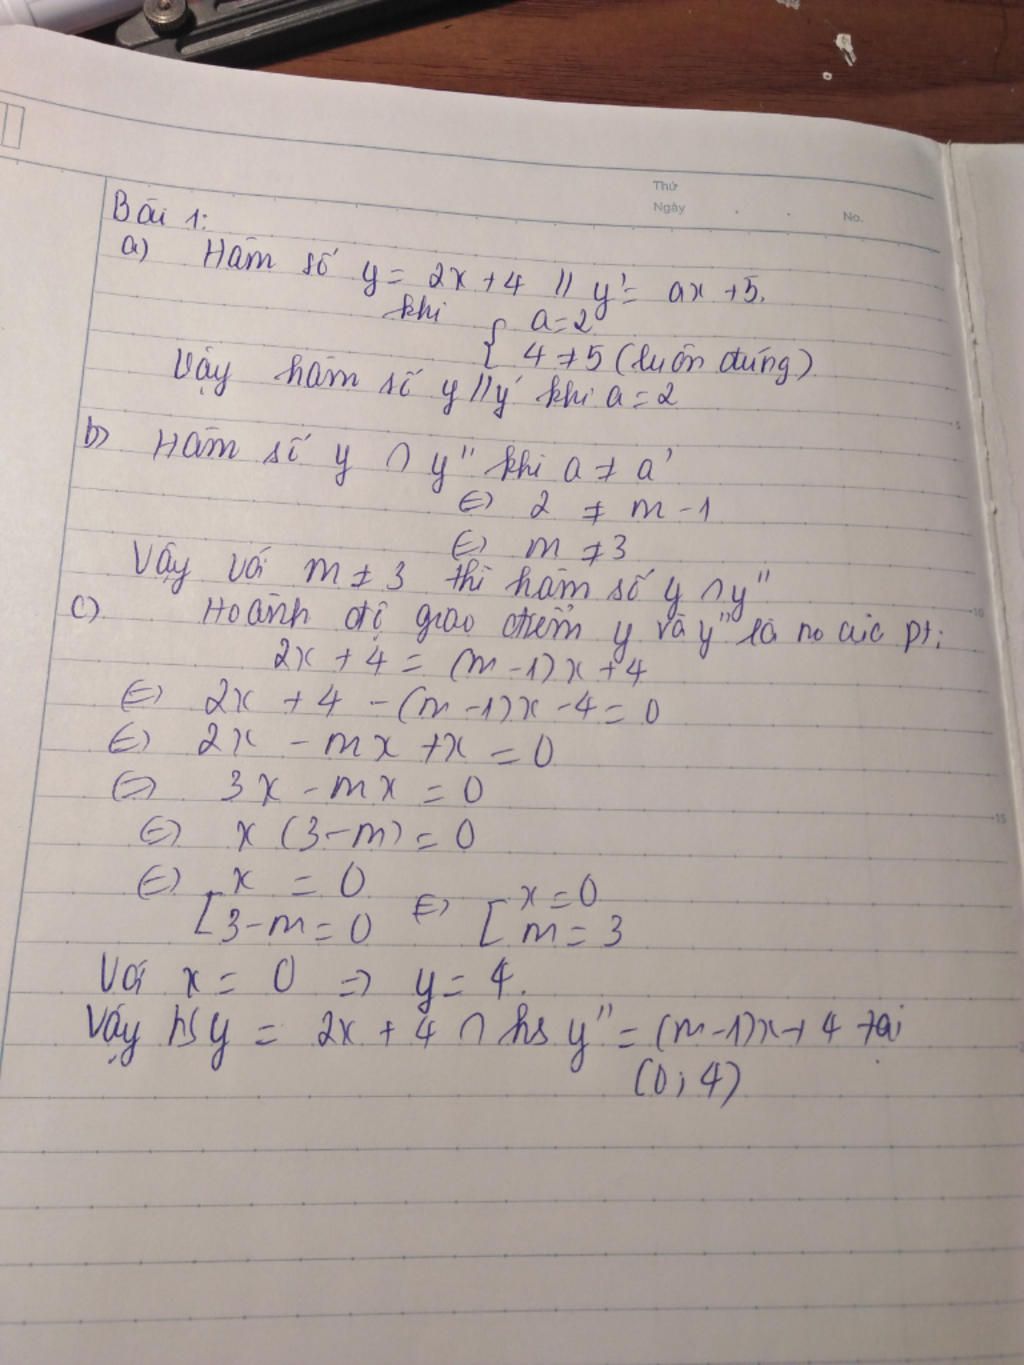 Thứ
Ngày
No.
Bài 1:
a) Hàm số y = 2x + 4 // y' = ax + 5.
khi { a = 2
4 ≠ 5 (luôn đúng)
Vậy hàm số y // y' khi a = 2
b) Hàm số y ∩ y" khi a ≠ a'
⇔ 2 ≠ m - 1
⇔ m ≠ 3
Vậy với m ≠ 3 thì hàm số y ∩ y"
c) Hoành độ giao điểm y và y" là no của pt:
2x + 4 = (m - 1)x + 4
⇔ 2x + 4 - (m - 1)x - 4 = 0
⇔ 2x - mx + x = 0
⇔ 3x - mx = 0
⇔ x (3 - m) = 0
⇔ [ x = 0 ⇔ [ x = 0
3 - m = 0 m = 3
Với x = 0 ⇒ y = 4.
Vậy hs y = 2x + 4 ∩ hs y" = (m - 1)x + 4 tại
(0; 4)
5
10
15